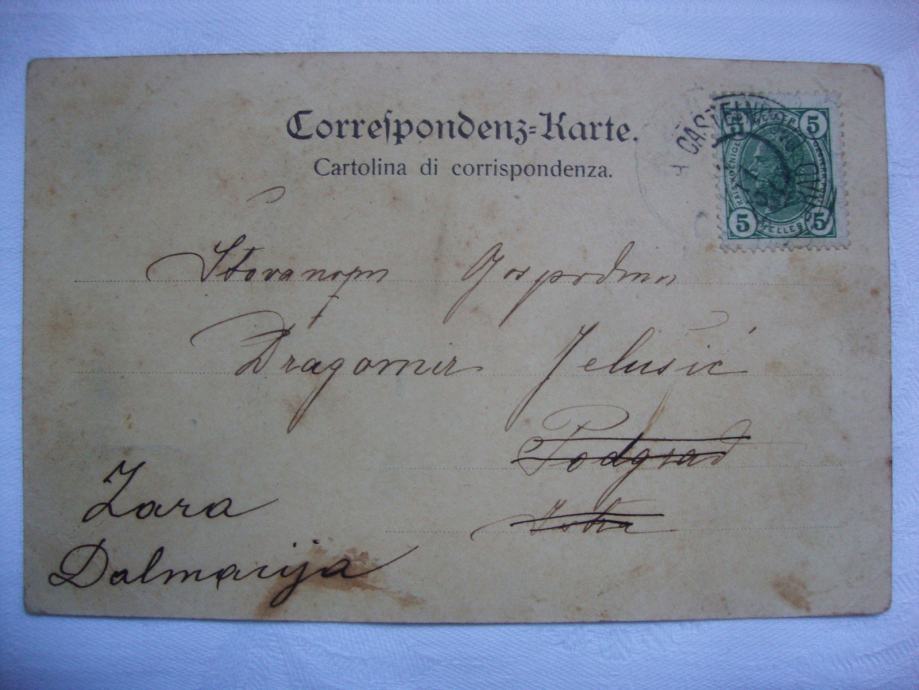 Correspondenz-Karte.
Cartolina di corrispondenza.
5 5
5 HELLER 5
Gospodin
Dragomir Jelušić
Podgrad
Istra
Zara
Dalmacija